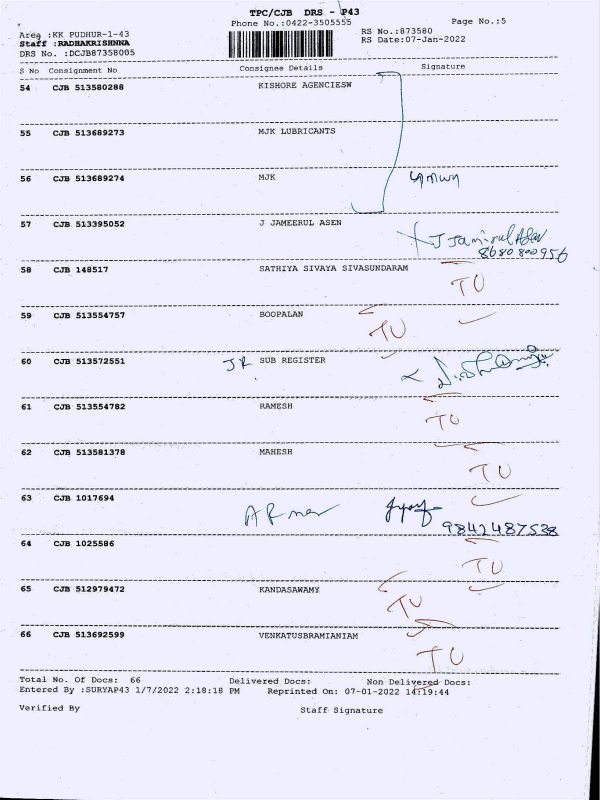 TPC/CJB DRS - P43
Phone No.:0422-3505555
Page No.:5
Area :KK PUDHUR-1-43
RS No.:873580
Staff :RADHAKRISHNNA
RS Date:07-Jan-2022
DRS No. :DCJB87358005
S No Consignment No Consignee Details Signature
54 CJB 513580288 KISHORE AGENCIESW
55 CJB 513689273 MJK LUBRICANTS
56 CJB 513689274 MJK
57 CJB 513395052 J JAMEERUL ASEN
J Jamirul Asen
8680800956
58 CJB 148517 SATHIYA SIVAYA SIVASUNDARAM
TU
59 CJB 513554757 BOOPALAN
TU
60 CJB 513572551 JR SUB REGISTER
61 CJB 513554782 RAMESH
TU
62 CJB 513581378 MAHESH
TU
63 CJB 1017694
9842487538
64 CJB 1025586
TU
65 CJB 512979472 KANDASAWAMY
TU
66 CJB 513692599 VENKATUSBRAMIANIAM
TU
Total No. Of Docs: 66 Delivered Docs: Non Delivered Docs:
Entered By :SURYAP43 1/7/2022 2:18:18 PM Reprinted On: 07-01-2022 14:19:44
Verified By Staff Signature